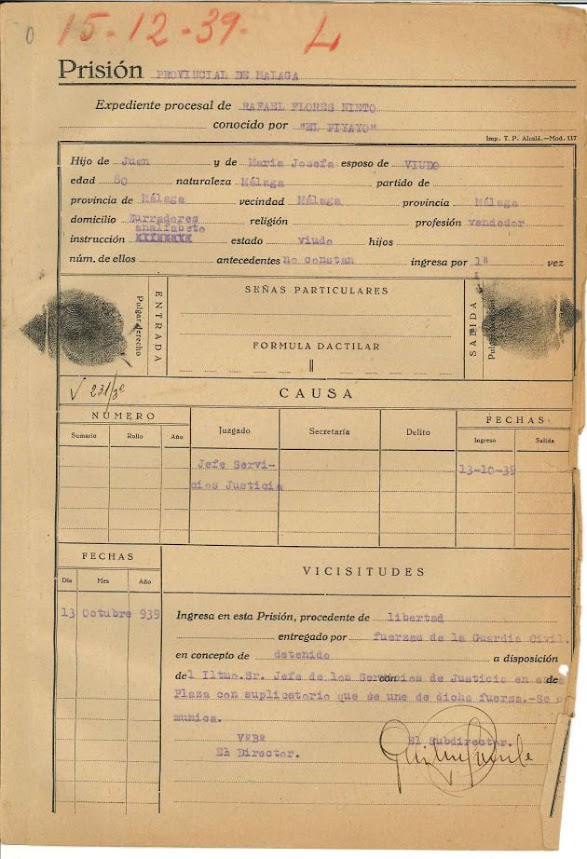 15-12-39. L
Prisión PROVINCIAL DE MALAGA
Expediente procesal de RAFAEL FLORES NIETO
conocido por "EL PIYAYO"
Imp. T. P. Alcalá.—Mod. 117
Hijo de Juan y de Maria Josefa esposo de VIUDO
edad 80 naturaleza Málaga partido de
provincia de Málaga vecindad Málaga provincia Málaga
domicilio Zurradores religión profesión vendedor
analfabeto
instrucción estado viudo hijos
núm. de ellos antecedentes no constan ingresa por 1ª vez
SEÑAS PARTICULARES
ENTRADA
Pulgar derecho
SALIDA
Pulgar
FORMULA DACTILAR
CAUSA
NUMERO
FECHAS
Sumario Rollo Año Juzgado Secretaría Delito Ingreso Salida
Jefe Servi- 13-10-39
cios Justicia
FECHAS
VICISITUDES
Día Mes Año
13 Octubre 939 Ingresa en esta Prisión, procedente de libertad
entregado por fuerzas de la Guardia Civil.
en concepto de detenido a disposición
del Iltmo. Sr. Jefe de los Servicios de Justicia en
Plaza con suplicatorio que se une de dicha fuerza.-Se
munica.
VºBº El Subdirector.
El Director.